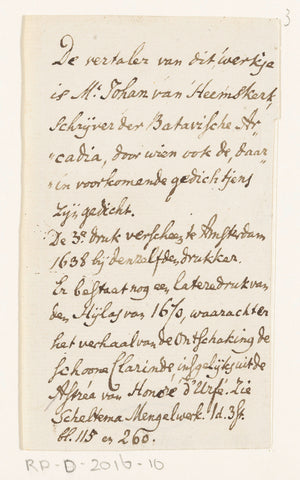 3
De vertaler van dit werkje
is Mr. Johan van Heemskerk,
Schrijver der Batavische Ar-
"cadia, door wien ook de, daar-
"in voorkomende gedichtjens
zijn gedicht.
De 3e. druk verscheen te Amsterdam
1638 bij denzelfden drukker.
Er bestaat nog een latere druk van
den Hijlas van 1670, waarachter
het verhaal van de Ontschaking de
schoone Clarinde insgelijks uit de
Astréa van Honoré d'Urfé. Zie
Scheltema Mengelwerk. 1d. 3st.
bl. 115 en 260.
RP-D-2016-10